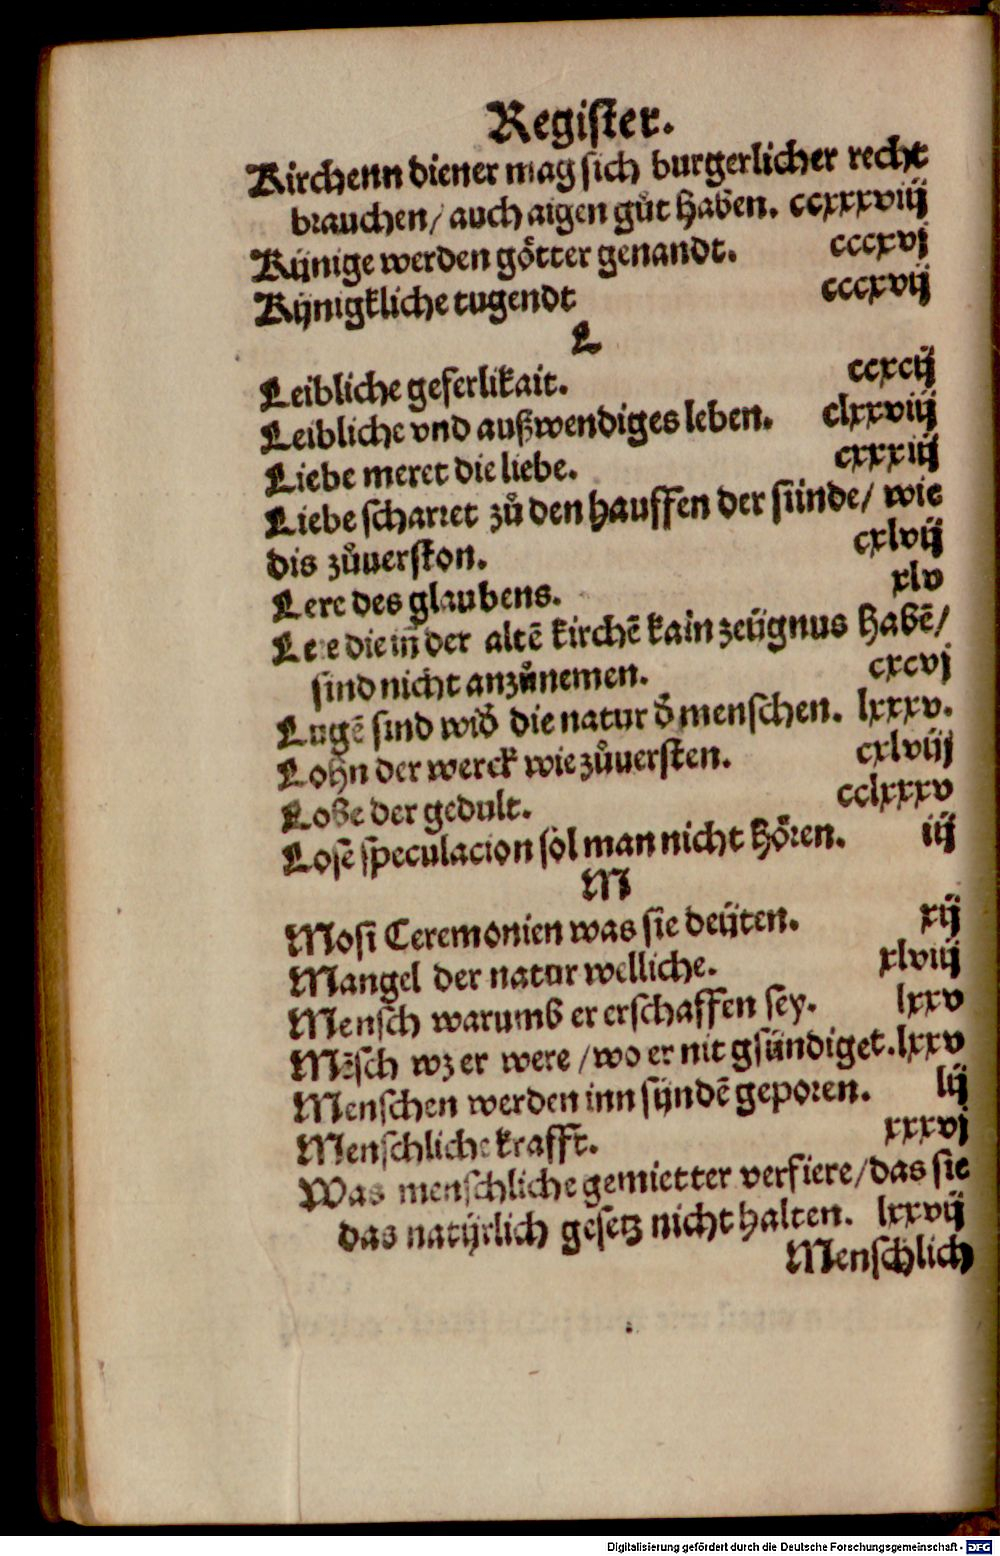 Register.
Kirchenn diener mag sich burgerlicher recht
brauchen/ auch aigen gůt haben. ccxxxviiij
Künige werden götter genandt. cccxvj
Künigkliche tugendt cccxvij
L
Leibliche geferlikait. ccxcij
Leibliche vnd außwendiges leben. clxxviiij
Liebe meret die liebe. cxxxiij
Liebe scharret zů den hauffen der sünde/ wie
dis zůuerston. cxlvij
Lere des glaubens. xlv
Lere die in̄ der altē kirchē kain zeügnus habē/
sind nicht anzůnemen. cxcvj
Lugē sind wið die natur ð menschen. lxxxv.
Lohn der werck wie zůuersten. cxlviij
Lobe der gedult. cclxxxv
Losē speculacion sol man nicht hören. iij
M
Mosi Ceremonien was sie deüten. xij
Mangel der natur welliche. xlviij
Mensch warumb er erschaffen sey. lxxv
Mēsch wz er were /wo er nit gsündiget. lxxv
Menschen werden inn sündē geporen. lij
Menschliche krafft. xxxvj
Was menschliche gemietter verfiere/das sie
das natürlich gesetz nicht halten. lxxvij
Menschlich
Digitalisierung gefördert durch die Deutsche Forschungsgemeinschaft - DFG